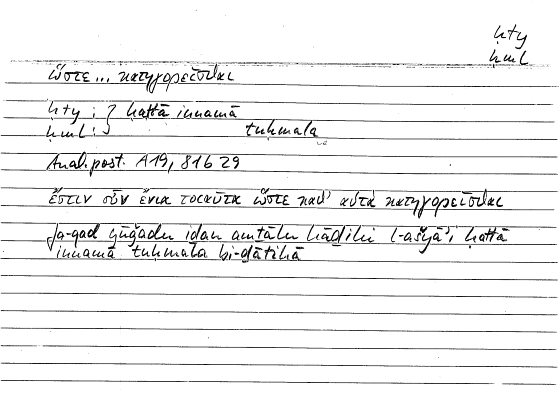 ḥty
ḥml
ὥστε... κατηγορεῖσθαι
ḥty : } ḥattā innamā
ḥml : tuḥmala
Anal. post. A 19, 81b 29
ἔστιν οὖν ἔνια τοιαῦτα ὥστε καθ' αὑτὰ κατηγορεῖσθαι
fa-qad yūǧadu iḏan amṯālu hāḏihi l-ašyāʾi ḥattā
innamā tuḥmala bi-ḏātihā